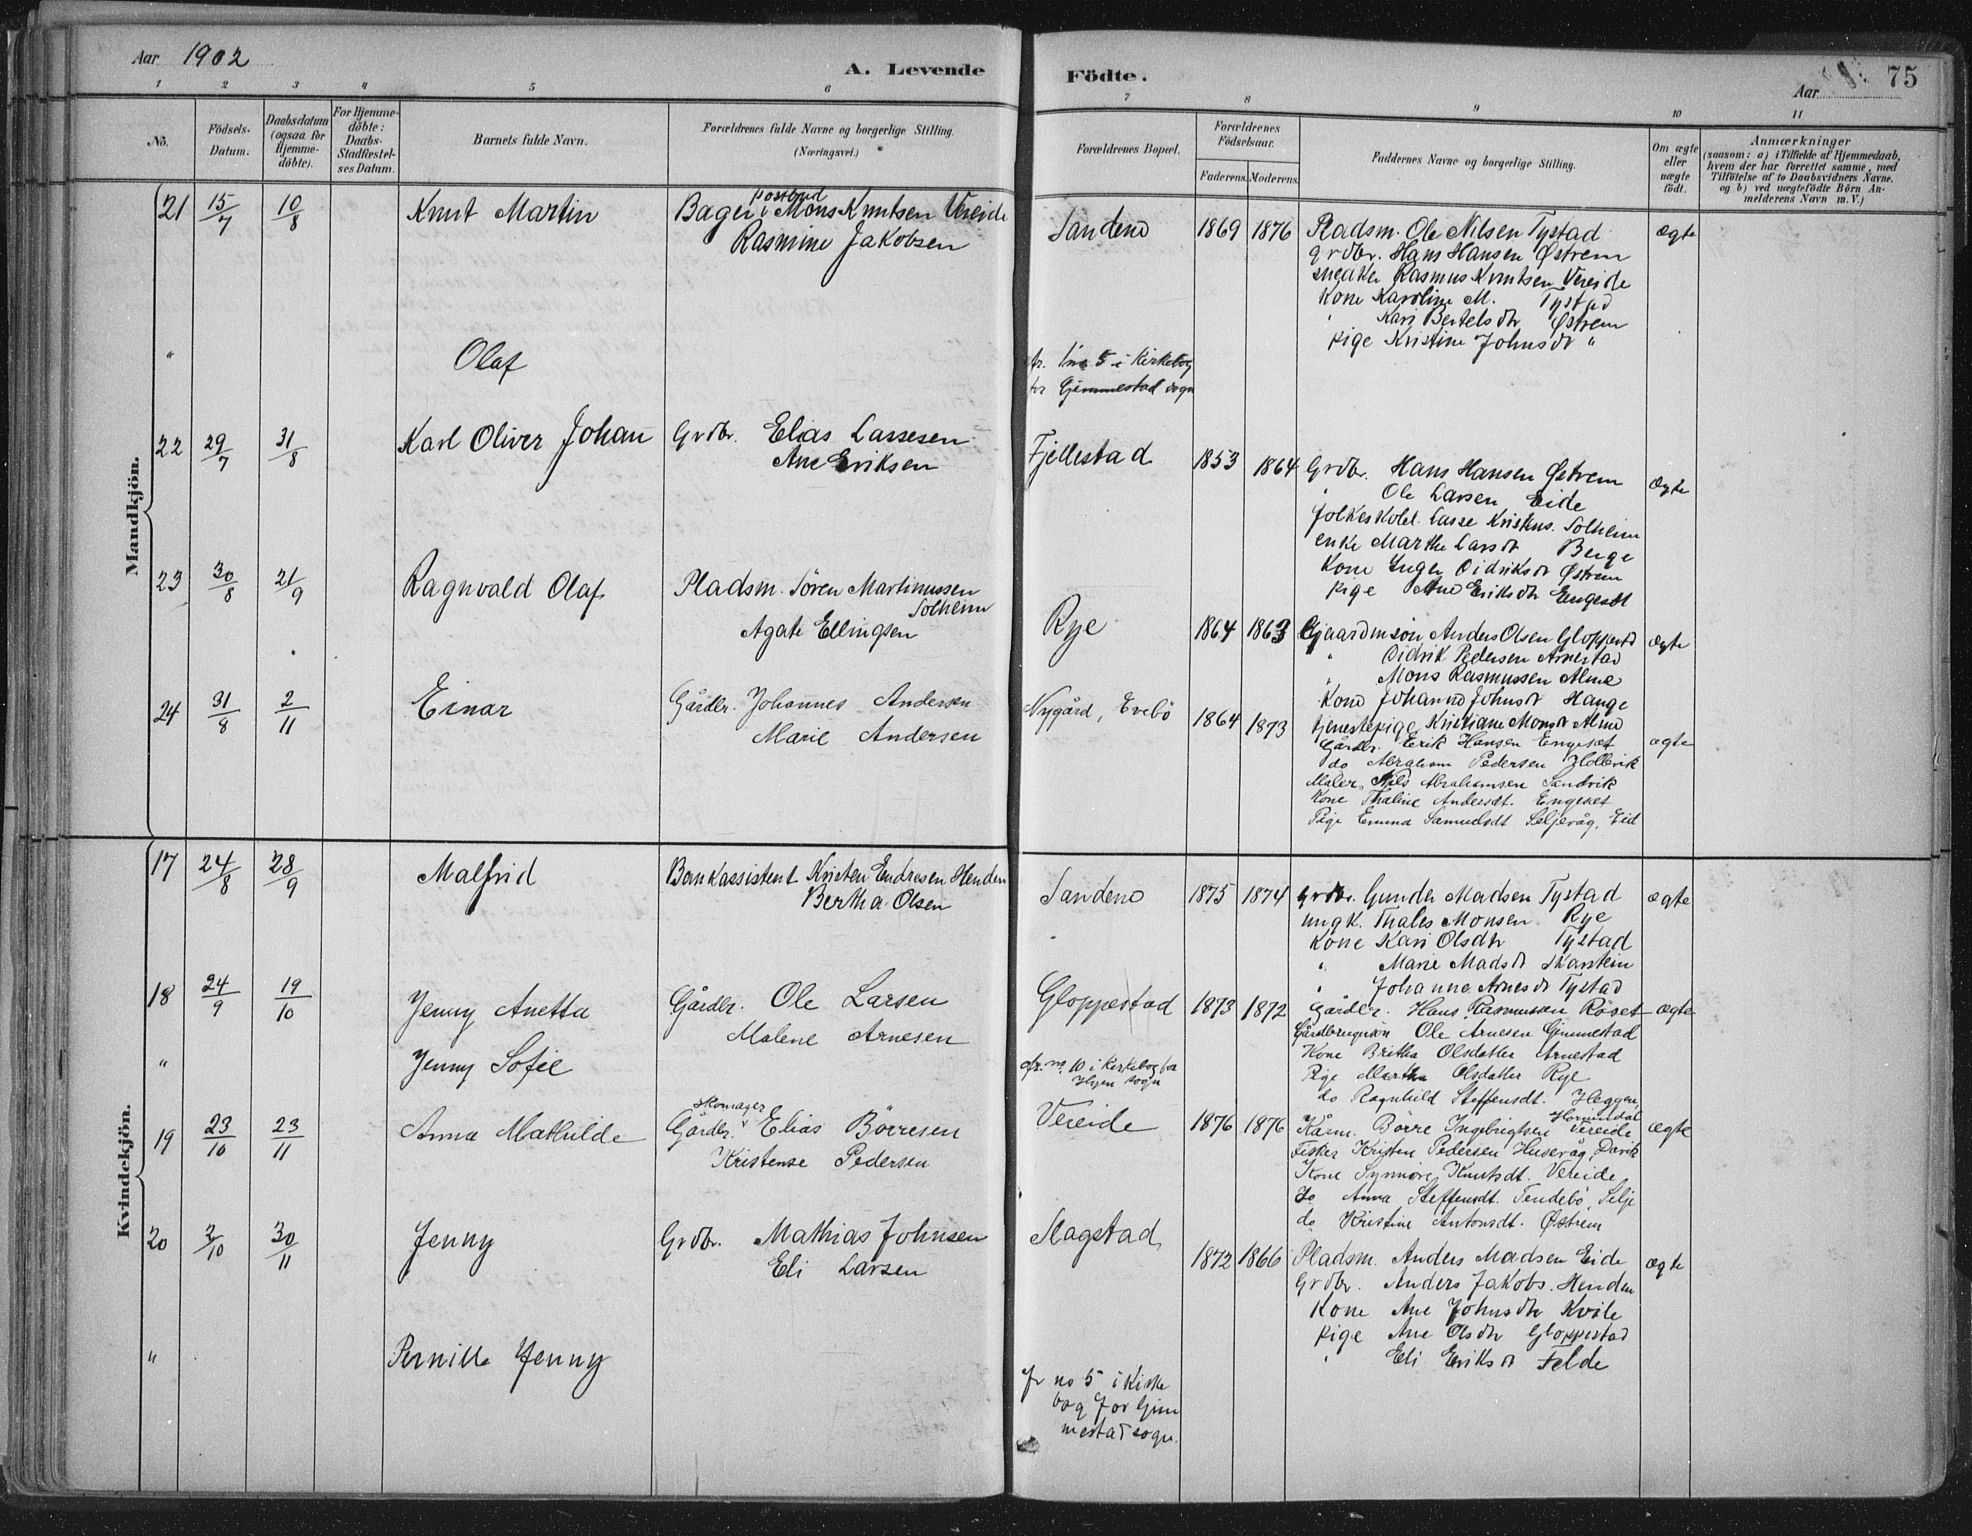 Aar 1902
A. Levende Födte.
Aar 75
1 2 3 4 5 6 7 8 9 10 11
No.
Födsels-Datum.
Daabsdatum (ogsaa for Hjemme-döbte).
For Hjemme-döbte: Daabs-Stadfæstel-ses Datum.
Barnets fulde Navn.
Forældrenes fulde Navne og borgerlige Stilling.
(Næringsvei.)
Forældrenes Bopæl.
Forældrenes Födselsaar.
Faderens. Moderens.
Faddernes Navne og borgerlige Stilling.
Om ægte eller uægte födt.
Anmærkninger
(saasom: a) i Tilfælde af Hjemmedaab, hvem der har forrettet samme, med Tilföielse af to Daabsvidners Navne. og b) ved uægtefödte Börn An-melderens Navn m. V.)
Mandkjön.
21 15/7 10/8 Knut Martin
postbud
Bager Mons Knutsen Vereide
Rasmine Jakobsen
Sandene 1869 1876
Pladsm. Ole Nilsen Tystad ægte
grdbr. Hans Hansen Østrem
Rasmus Knutsen Vereide
Kone Karoline M. Tystad
" Kari Bertelsdtr Østrem
pige Kristine Johnsdt "
" Olaf
no 5 i Kirkebog
for Gjemmestad sogn
22 29/7 31/8 Karl Oliver Johan
Grdbr. Elias Lassesen
Ane Eriksen
Fjellestad 1853 1864
Grdbr. Hans Hansen Østrem ægte
" Ole Larsen Eide
folkeskolel. Lasse Kristens. Solheim
enke Marthe Larsdt Berge
Kone Inger Didriksdt Østrem
pige Ane Eriksdtr Engeset
23 30/8 21/9 Ragnvald Olaf
Pladsm. Sören Martinussen
Solheim
Agate Ellingsen
Rye 1864 1863
Gaardmsøn Anders Olsen Gloppestd ægte
" Didrik Pedersen Arnestad
" Mons Rasmussen Alme
Kone Johanne Johnsdt Hauge
tjenestepige Kristiane Monsdt Alme
24 31/8 2/11 Einar
Gårdbr. Johannes Andersen
Marie Andersen
Nygård, Evebø 1864 1873
Gårdbr. Erik Hansen Engeset ægte
do Abraham Pedersen Hollevik
Maler Nils Abrahamsen Sandvik
Kone Thaline Andersdt. Engeset
Pige Emma Samuelsdt Seljevåg, Eid
Kvindekjön.
17 24/8 28/9 Malfrid
Bankassistent Kristen Endresen Henden
Bertha Olsen
Sandene 1875 1874
Grdbr. Gunder Madsen Tystad ægte
ungk. Thales Monsen Rye
Kone Kari Olsdtr Tystad
" Marie Madsdt Skarstein
" Johanne Arnesdt Tystad
18 24/9 19/10 Jenny Anetta
Gårdbr. Ole Larsen
Malene Arnesen
Gloppestad 1873 1872
Gårdbr. Hans Rasmussen Røset ægte
Ole Arnesen Gimmestad
Kone Britha Olsdatter Arnestad
Pige Martha Olsdatter Rye
do Ragnhild Steffensdt. Heggen,
Hornindal
" Jenny Sofie
no. 10 i Kirkebog for
Hyen sogn
19 23/10 23/11 Anna Mathilde
Skomager
Gårdbr. Elias Börresen
Kristense Pedersen
Vereide 1876 1876
Kårm. Börre Ingebrigtsen Vereide ægte
Fisker Kristen Pedersen Husevåg, Davik
Kone Synnøve Knutsdt. Vereide
Do Anna Steffensdt. Tendebö, Selje
do Kristine Antonsdt. Østrem
20 2/10 30/11 Jenny
Grdbr. Mathias Johnsen
Eli Larsen
Slagstad 1872 1866
Pladsm. Anders Madsen Eide ægte
Grdbr. Anders Jakobs. Henden
Kone Ane Johnsdtr Kvile
pige Ane Olsdtr Gloppestad
" Eli Eriksdt Felde
" Pernille Jenny
fr no 5 i Kirke
bog for Gim
mestad sogn.